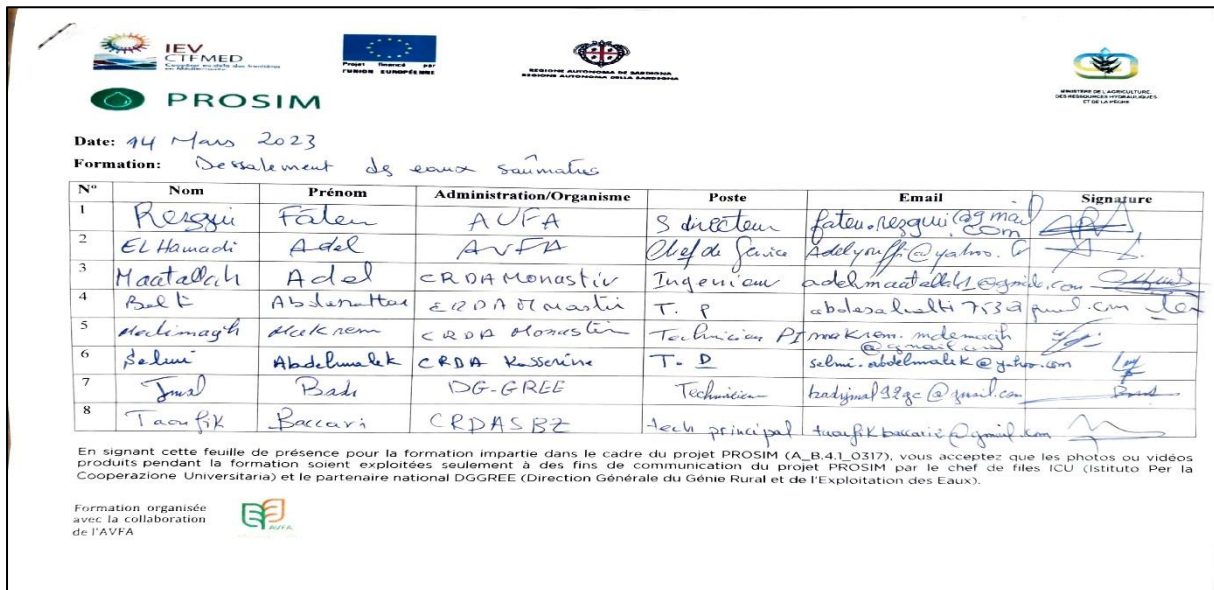 IEV
CTFMED
Projet financé par
l'UNION EUROPÉENNE
REGIONE AUTÒNOMA DE SARDIGNA
REGIONE AUTONOMA DELLA SARDEGNA
MINISTERE DE L'AGRICULTURE,
DES RESSOURCES HYDRAULIQUES
ET DE LA PÊCHE
PROSIM
Date: 14 Mars 2023
Formation: Dessalement des eaux saumatres
N° Nom Prénom Administration/Organisme Poste Email Signature
1 Rezgui Faten AVFA S directeur faten.rezgui@gmail.com
2 EL Hamadi Adel AVFA Chef de Service
3 Maatallah Adel CRDA Monastir Ingenieur
4 CRDA Monastir T. P
5 Makrem CRDA Monastir Technicien
6 Selmi Abdelmalek CRDA Kasserine selmi.abdelmalek@yahoo.com
7 Jmal Badr DG-GREE Technicien
8 Taoufik Baccari CRDASBZ tech principal
En signant cette feuille de présence pour la formation impartie dans le cadre du projet PROSIM (A_B.4.1_0317), vous acceptez que les photos ou vidéos
produits pendant la formation soient exploitées seulement à des fins de communication du projet PROSIM par le chef de files ICU (Istituto Per la
Cooperazione Universitaria) et le partenaire national DGGREE (Direction Générale du Génie Rural et de l'Exploitation des Eaux).
Formation organisée
avec la collaboration
de l'AVFA
AVFA